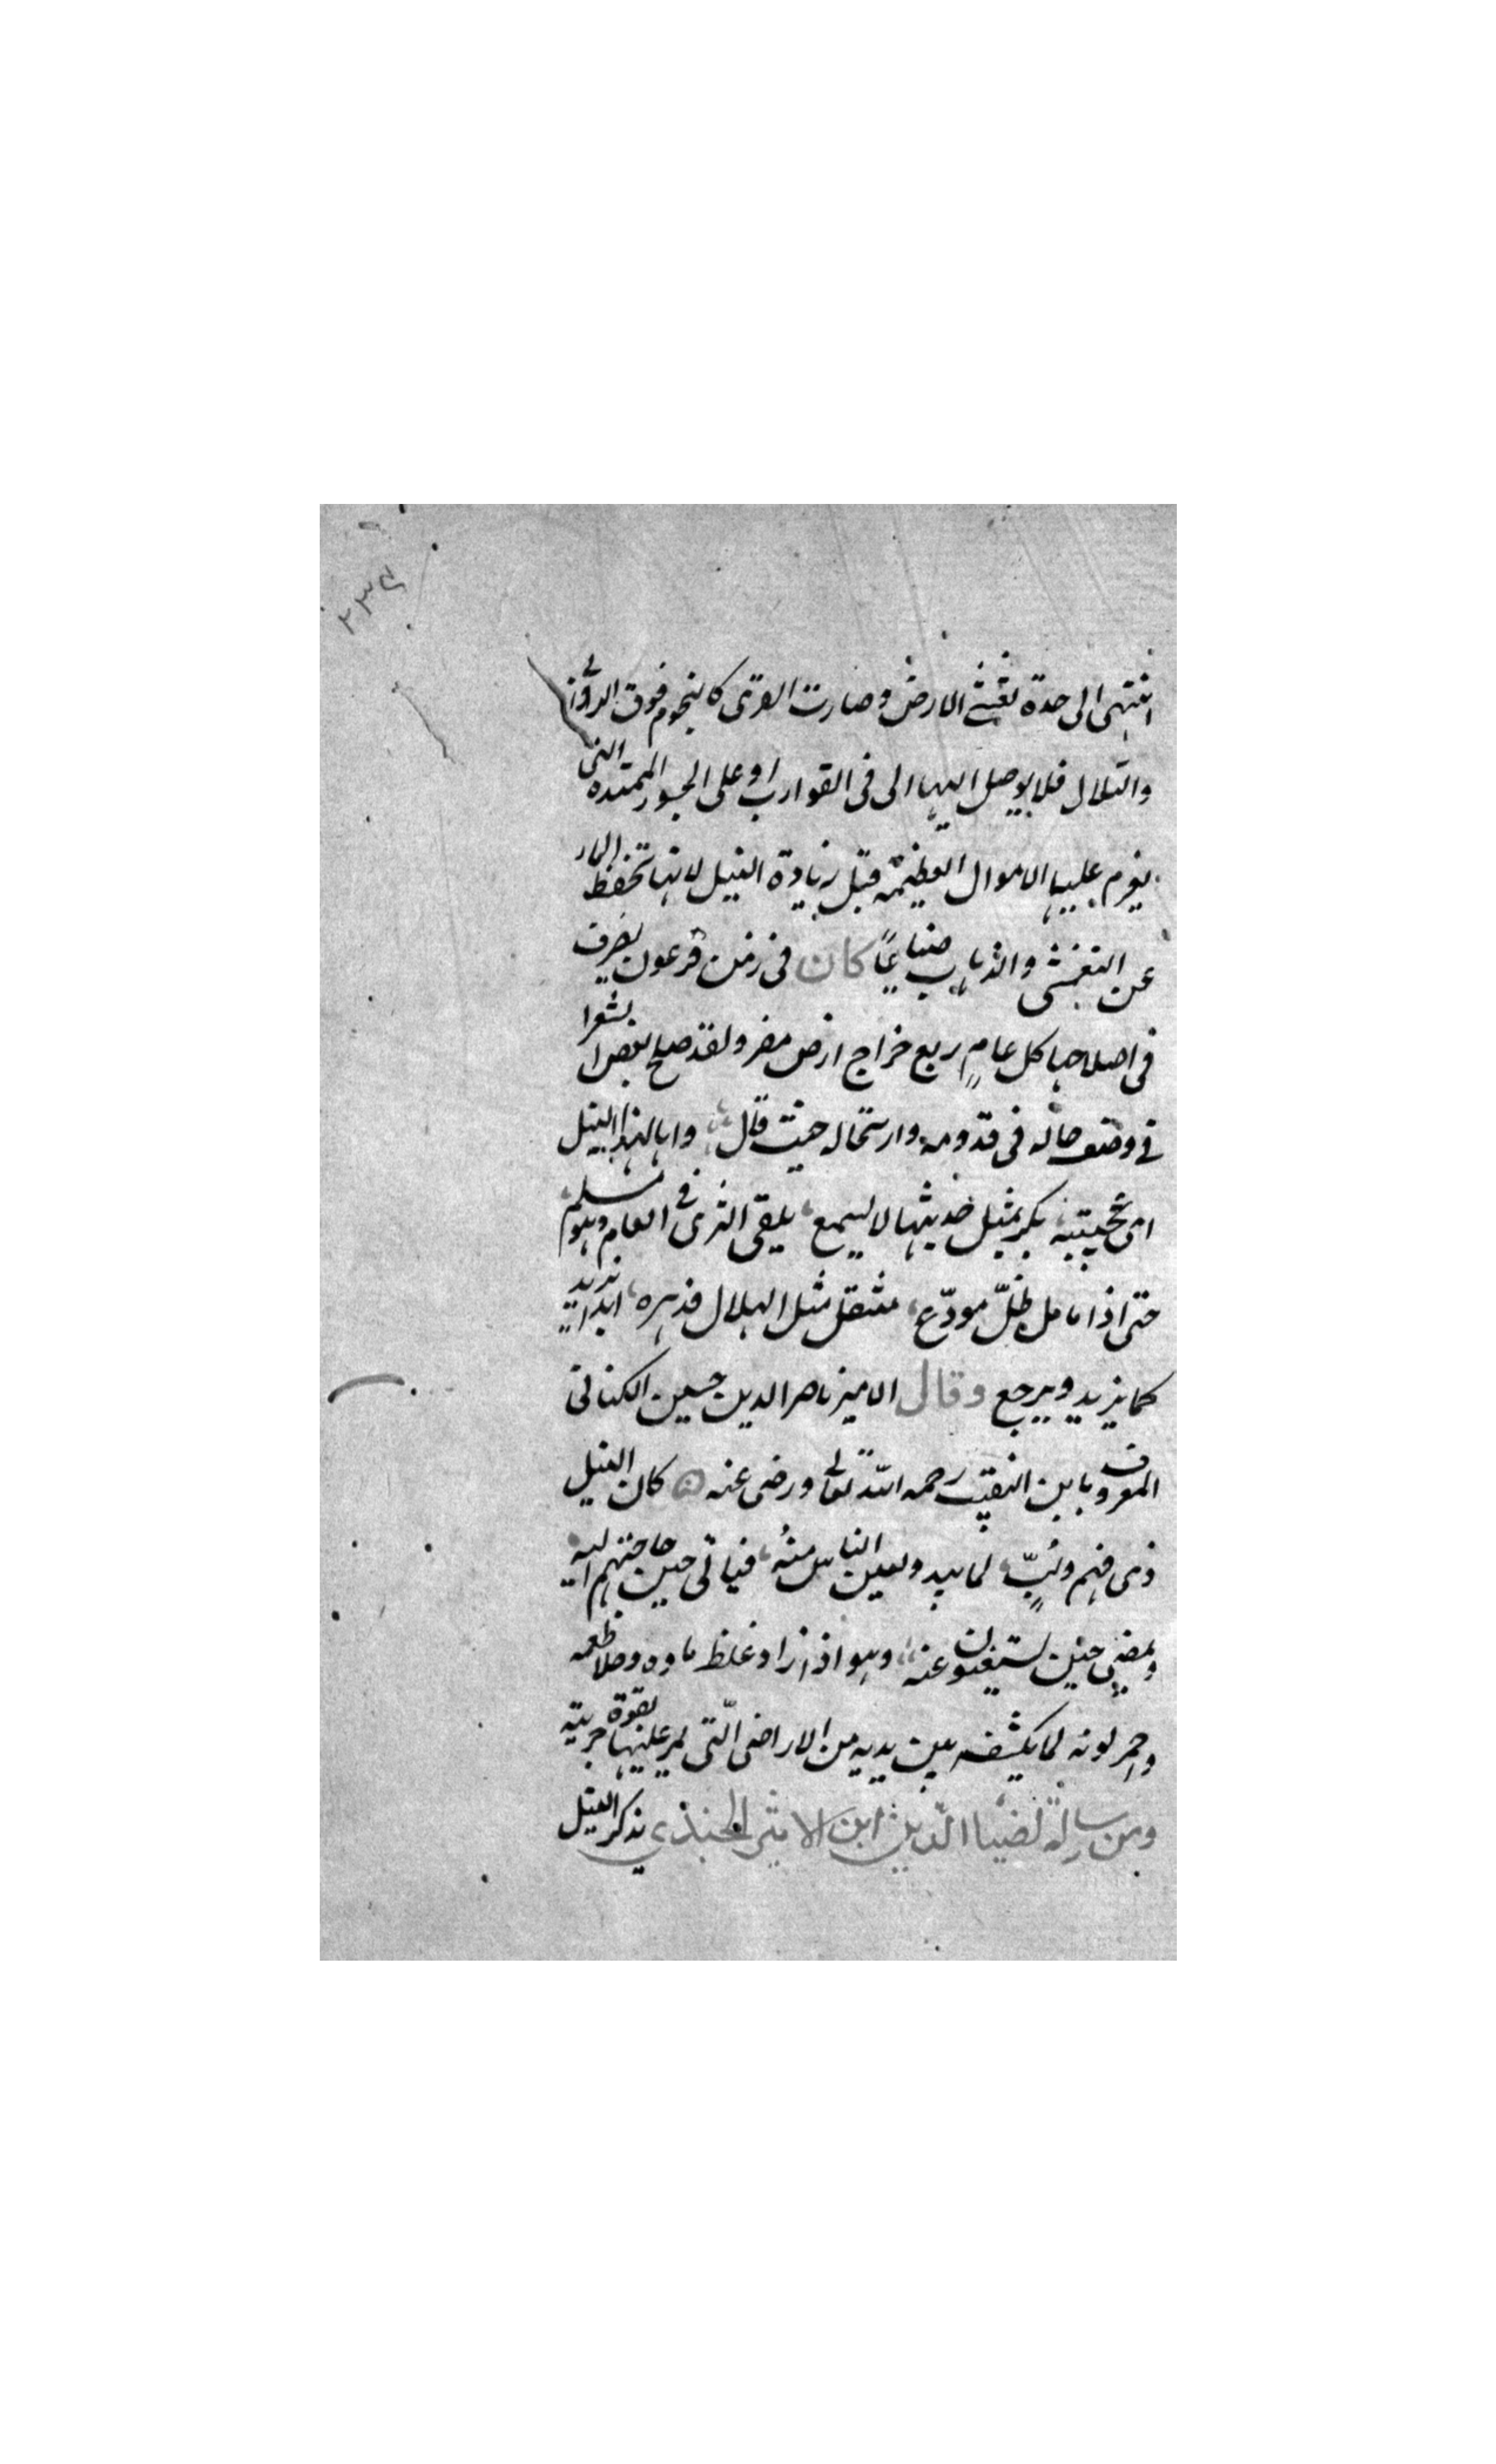 ٢٣٤
انتهى الى حدة تغشى الارض وصارت القرى كالنجوم فوق الروابى
والتلال فلا يوصل اليها الى فى القوارب او على الجسور الممتده التى
يغرم عليها الاموال العظيمة قبل زيادة النيل لانها تحفظ المار
عن التفشى والذهاب ضياعًا كان فى زمن فرعون يصرف
فى اصلاحها كل عامٍ ربع خراج ارض مصر ولقد صلح بعض الشعرا
فى وصف حاله فى قدومه وارتحاله حيث قال واها لهذا النيل
اى عجيبة بكر بمثل حديثها لا يسمع يلقى الثرى فى العام وهو مسلم
حتى اذا ما مل ظلّ مودّع مثقل مثل الهلال فدهره ابدا يزيد
كما يزيد ويرجع وقال الامير ناصر الدين حسين الكنانى
المعروف بابن النقيب رحمه الله تعالى ورضى عنه كان النيل
ذى فهم ولبٍّ لما يبدو لعين الناس منهُ فياتى حين حاجتهم اليه
ويمضى حين يستغنون عنه وهو اذا زاد غلظ ماوه وحلا طعمه
واحمر لونه لما يكشفه بين يديه من الاراضى الّتى يمر عليها بقوة جريته
ومن رسالة لضيا الدين ابن الاثير الجندى يذكر النيل